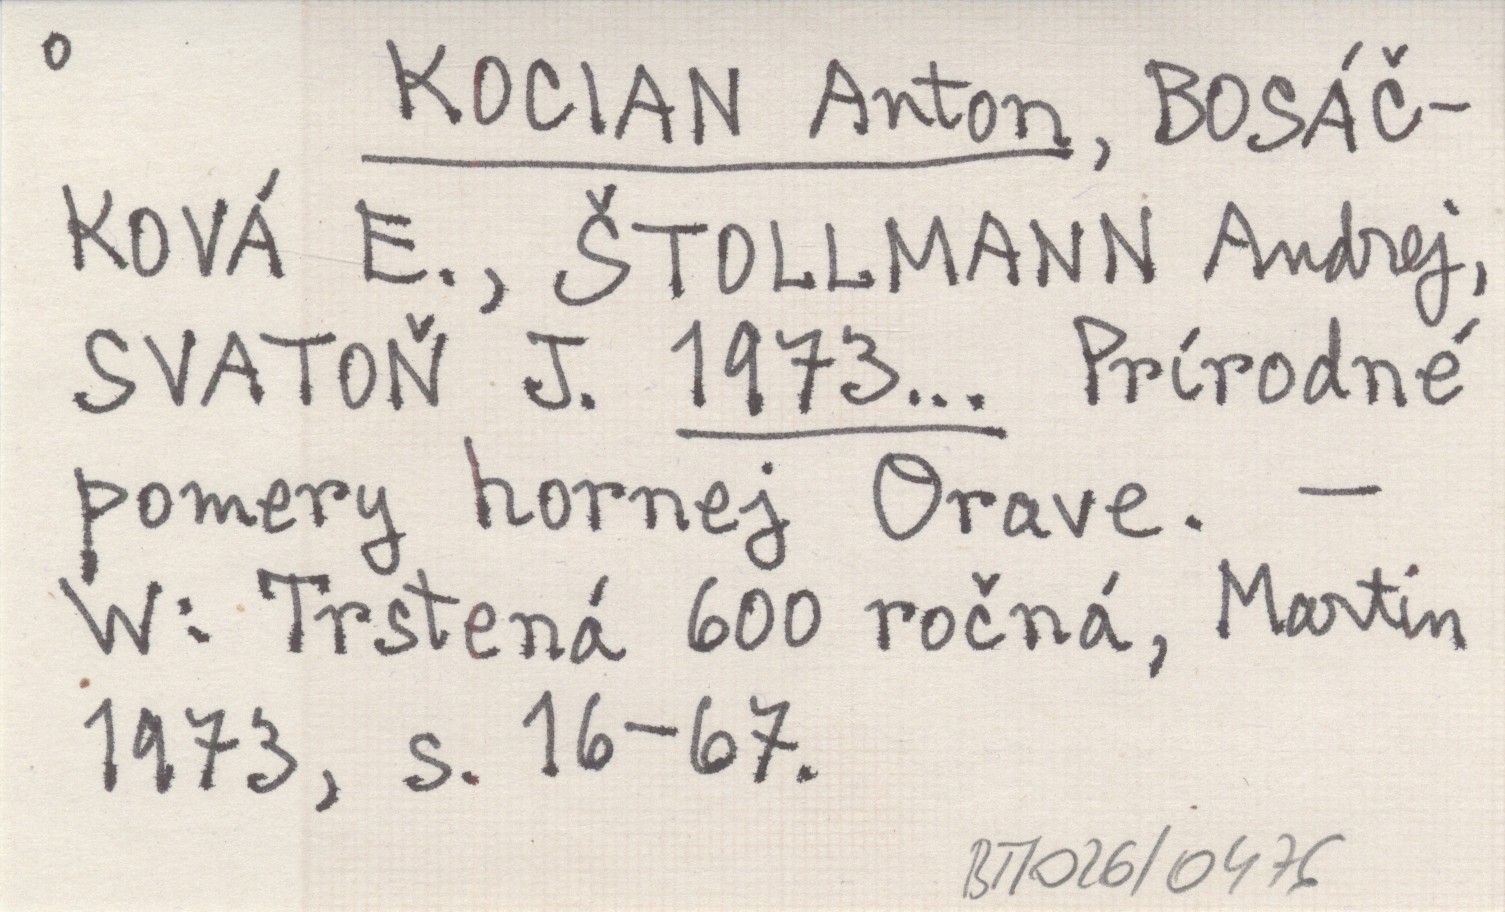 o KOCIAN Anton, BOSÁČ-
KOVÁ E., ŠTOLLMANN Andrej,
SVATOŇ J. 1973... Prírodné
pomery hornej Orave. —
W: Trstená 600 ročná, Martin
1973, s. 16-67.